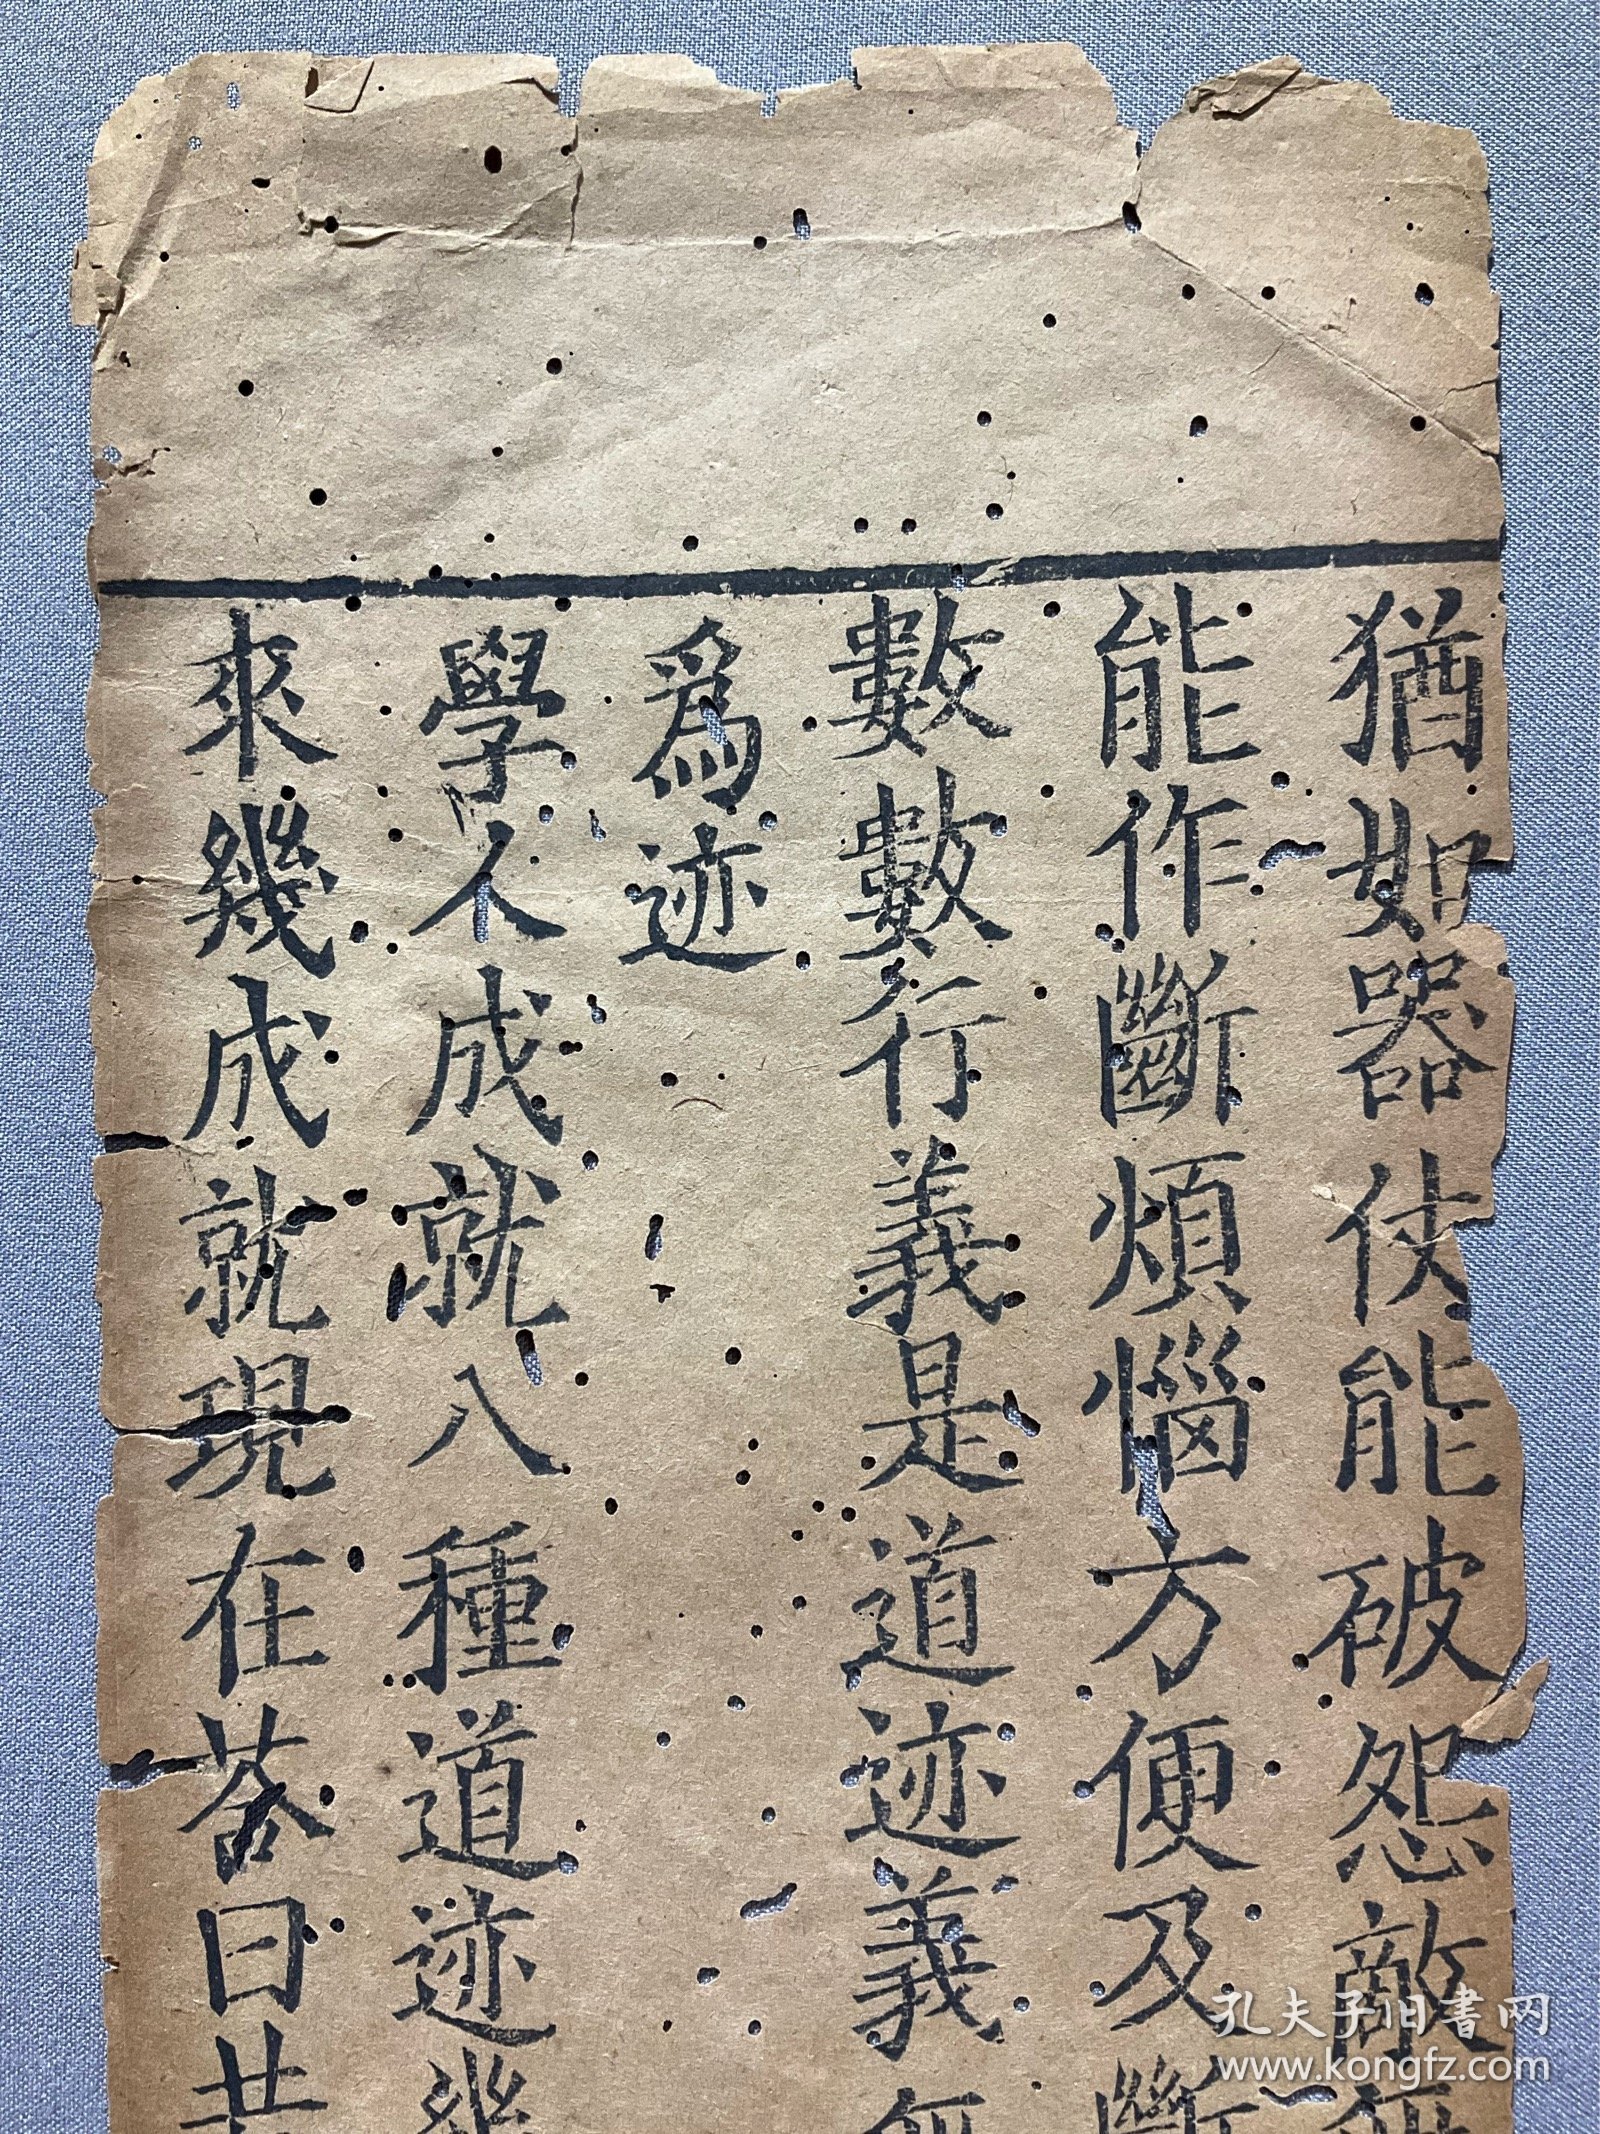 猶如器仗能破怨敵
能作斷煩惱方便及斷
數數行義是道迹義
爲迹
學人成就八種道迹幾
來幾成就現在荅曰
孔夫子旧書网
www.kongfz.com